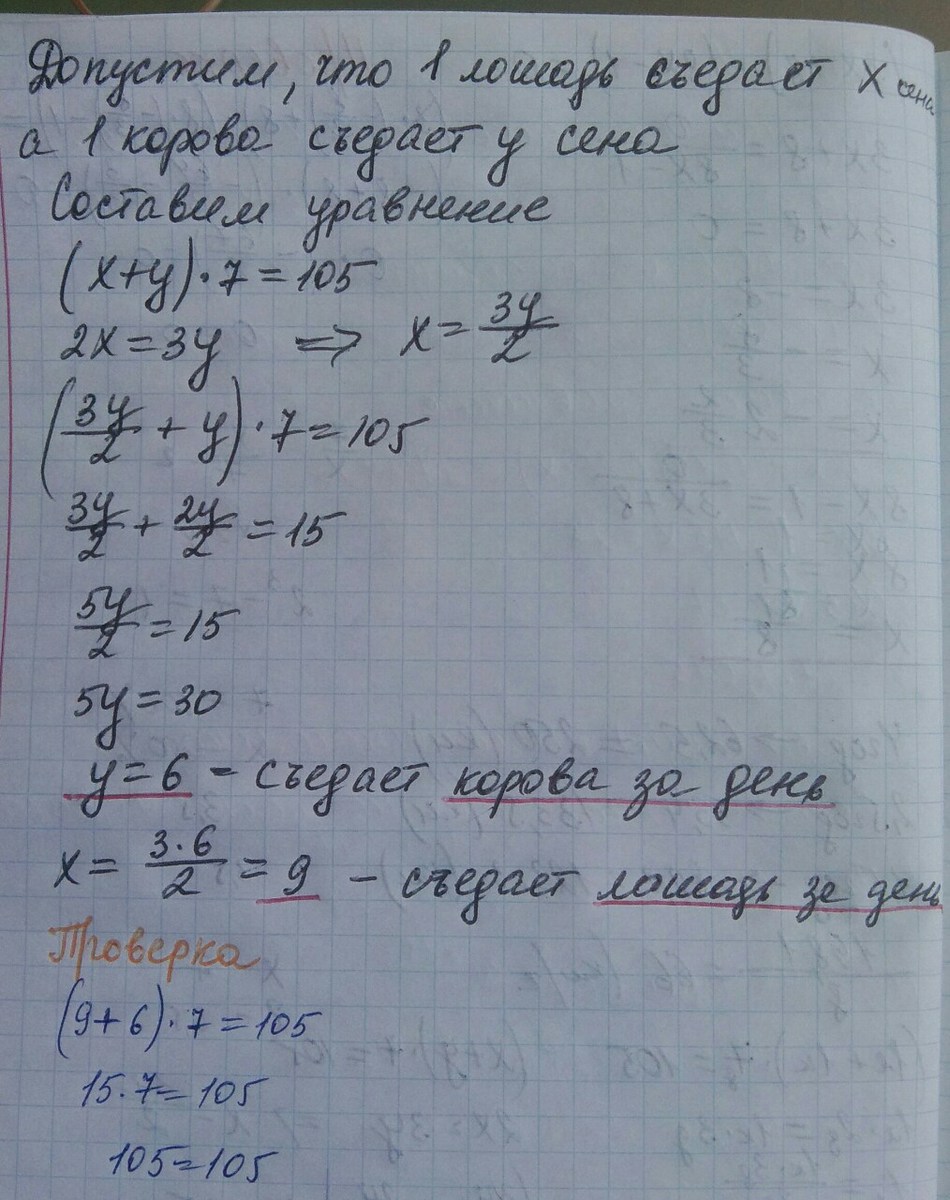 Допустим, что 1 лошадь съедает x сена
а 1 корова съедает y сена
Составим уравнение
(x+y)·7=105
2x=3y ⇒ x=3y/2
(3y/2+y)·7=105
3y/2+2y/2=15
5y/2=15
5y=30
y=6 - съедает корова за день
x=3·6/2=9 - съедает лошадь за день
Проверка
(9+6)·7=105
15·7=105
105=105